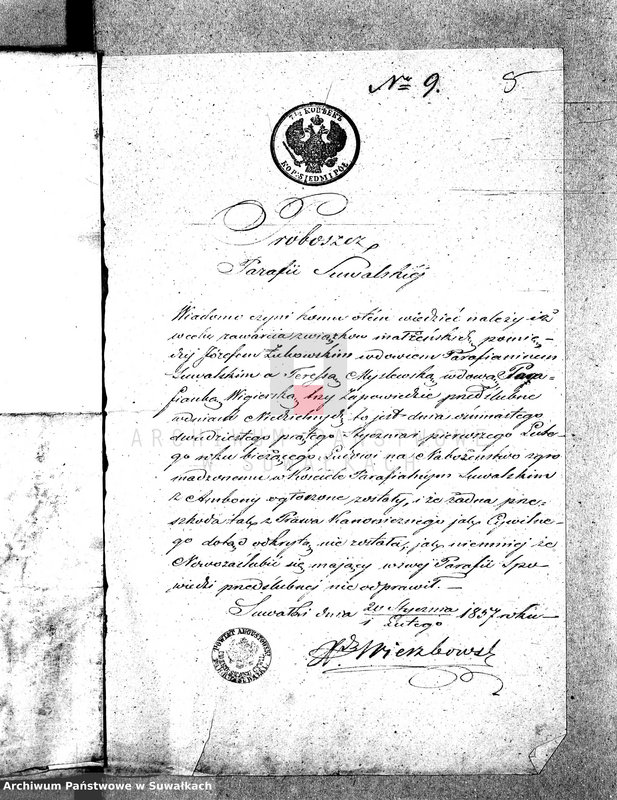 Nro 9.
8
7½ КОПѢЕКЪ
KOP: SIEDM I PÓŁ
Proboszcz
Parafii Suwalskiéj
Wiadomo czyni komu otém wiedzieć należy iż
w celu zawarcia związków małżeńskich pomię-
dzy Józefem Żukowskim wdowcem Parafianinem
Suwalskim a Teressą Myslewską wdową Para-
fianką Wigierską trzy zapowiedzie przedślubne
w dniach Niedzielnych to jest dnia osimnastego
dwudziestego piątego Stycznia i pierwszego Lute-
go roku bieżącego Ludowi na Nabożeństwo zgro
madzonemu w Kościele Parafialnym Suwalskim
z Ambony ogłoszone zostały, i że żadna prze-
szkoda tak z Prawa Kanonicznego jak Cywilne-
go dotąd odkrytą nie została, jak niemniej że
Nowozaślubić się mający w swej Parafii Spo-
wiedzi przedślubnej nie odprawił. —
Suwałki dnia 20 Stycznia / 1 Lutego 1857 roku
Xdz Wierzbowski
POWIAT AUGUSTOWSKI
ARCHIWUM PAŃSTWOWE
W SUWAŁKACH
Archiwum Państwowe w Suwałkach